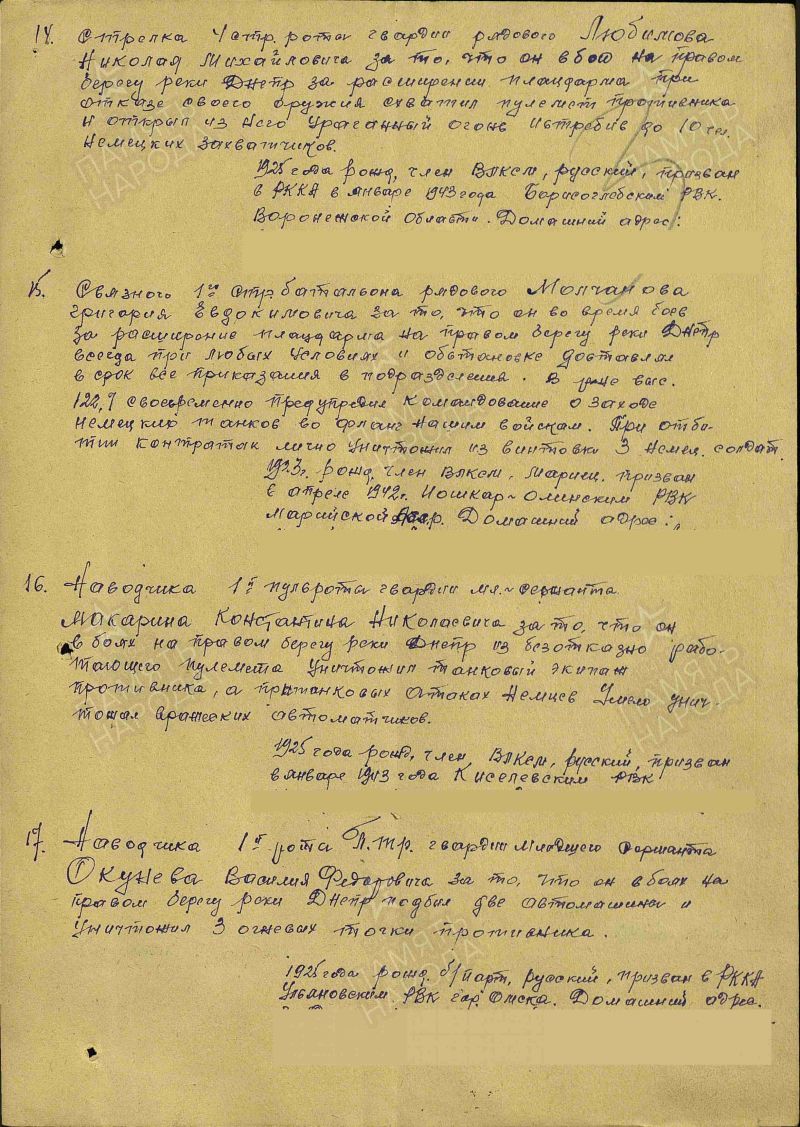 14. Стрелка 4 стр. рота гвардии рядового Любимова
Николая Михайловича за то, что он в бою на правом
берегу реки Днепр за расширении плацдарма при
отказе своего оружия схватил пулемет противника
и открыл из него ураганный огонь истребив до 10 чел.
немецких захватчиков.
1925 года рожд, член ВЛКСМ, русский, призван
в РККА в январе 1943 года Борисоглебским РВК.
Воронежской области. Домашний адрес:
15. Связного 1го стр. батальона рядового Молчанова
Григория Евдокимовича за то, что он во время боев
за расширение плацдарма на правом берегу реки Днепр
всегда при любых условиях и обстановке доставлял
в срок все приказания в подразделения. В р-не выс.
122,9 своевременно предупредил командование о заходе
немецких танков во фланг нашим войскам. При отби-
тии контратак лично уничтожил из винтовки 3 немец. солдат.
1923г. рожд, член ВЛКСМ, мариец, призван
в апреле 1942г. Йошкар-Олинским РВК
Марийской Асср. Домашний адрес:
16. Наводчика 1й пульрота гвардии мл.-сержанта
Макарина Константина Николаевича за то, что он
в боях на правом берегу реки Днепр из безотказно рабо-
тающего пулемета уничтожил танковый экипаж
противника, а при танковых атаках немцев умело унич-
тожал вражеских автоматчиков.
1925 года рожд, член ВЛКСМ, русский, призван
в январе 1943 года Киселевским РВК
17. Наводчика 1й рота П.тр. гвардии младшего сержанта
Окунева Василия Федоровича за то, что он в боях на
правом берегу реки Днепр подбил две автомашины и
уничтожил 3 огневых точки противника.
1925 года рожд. б/парт, русский, призван в РККА
Ульяновским РВК гор. Омска. Домашний адрес.
ПАМЯТЬ НАРОДА